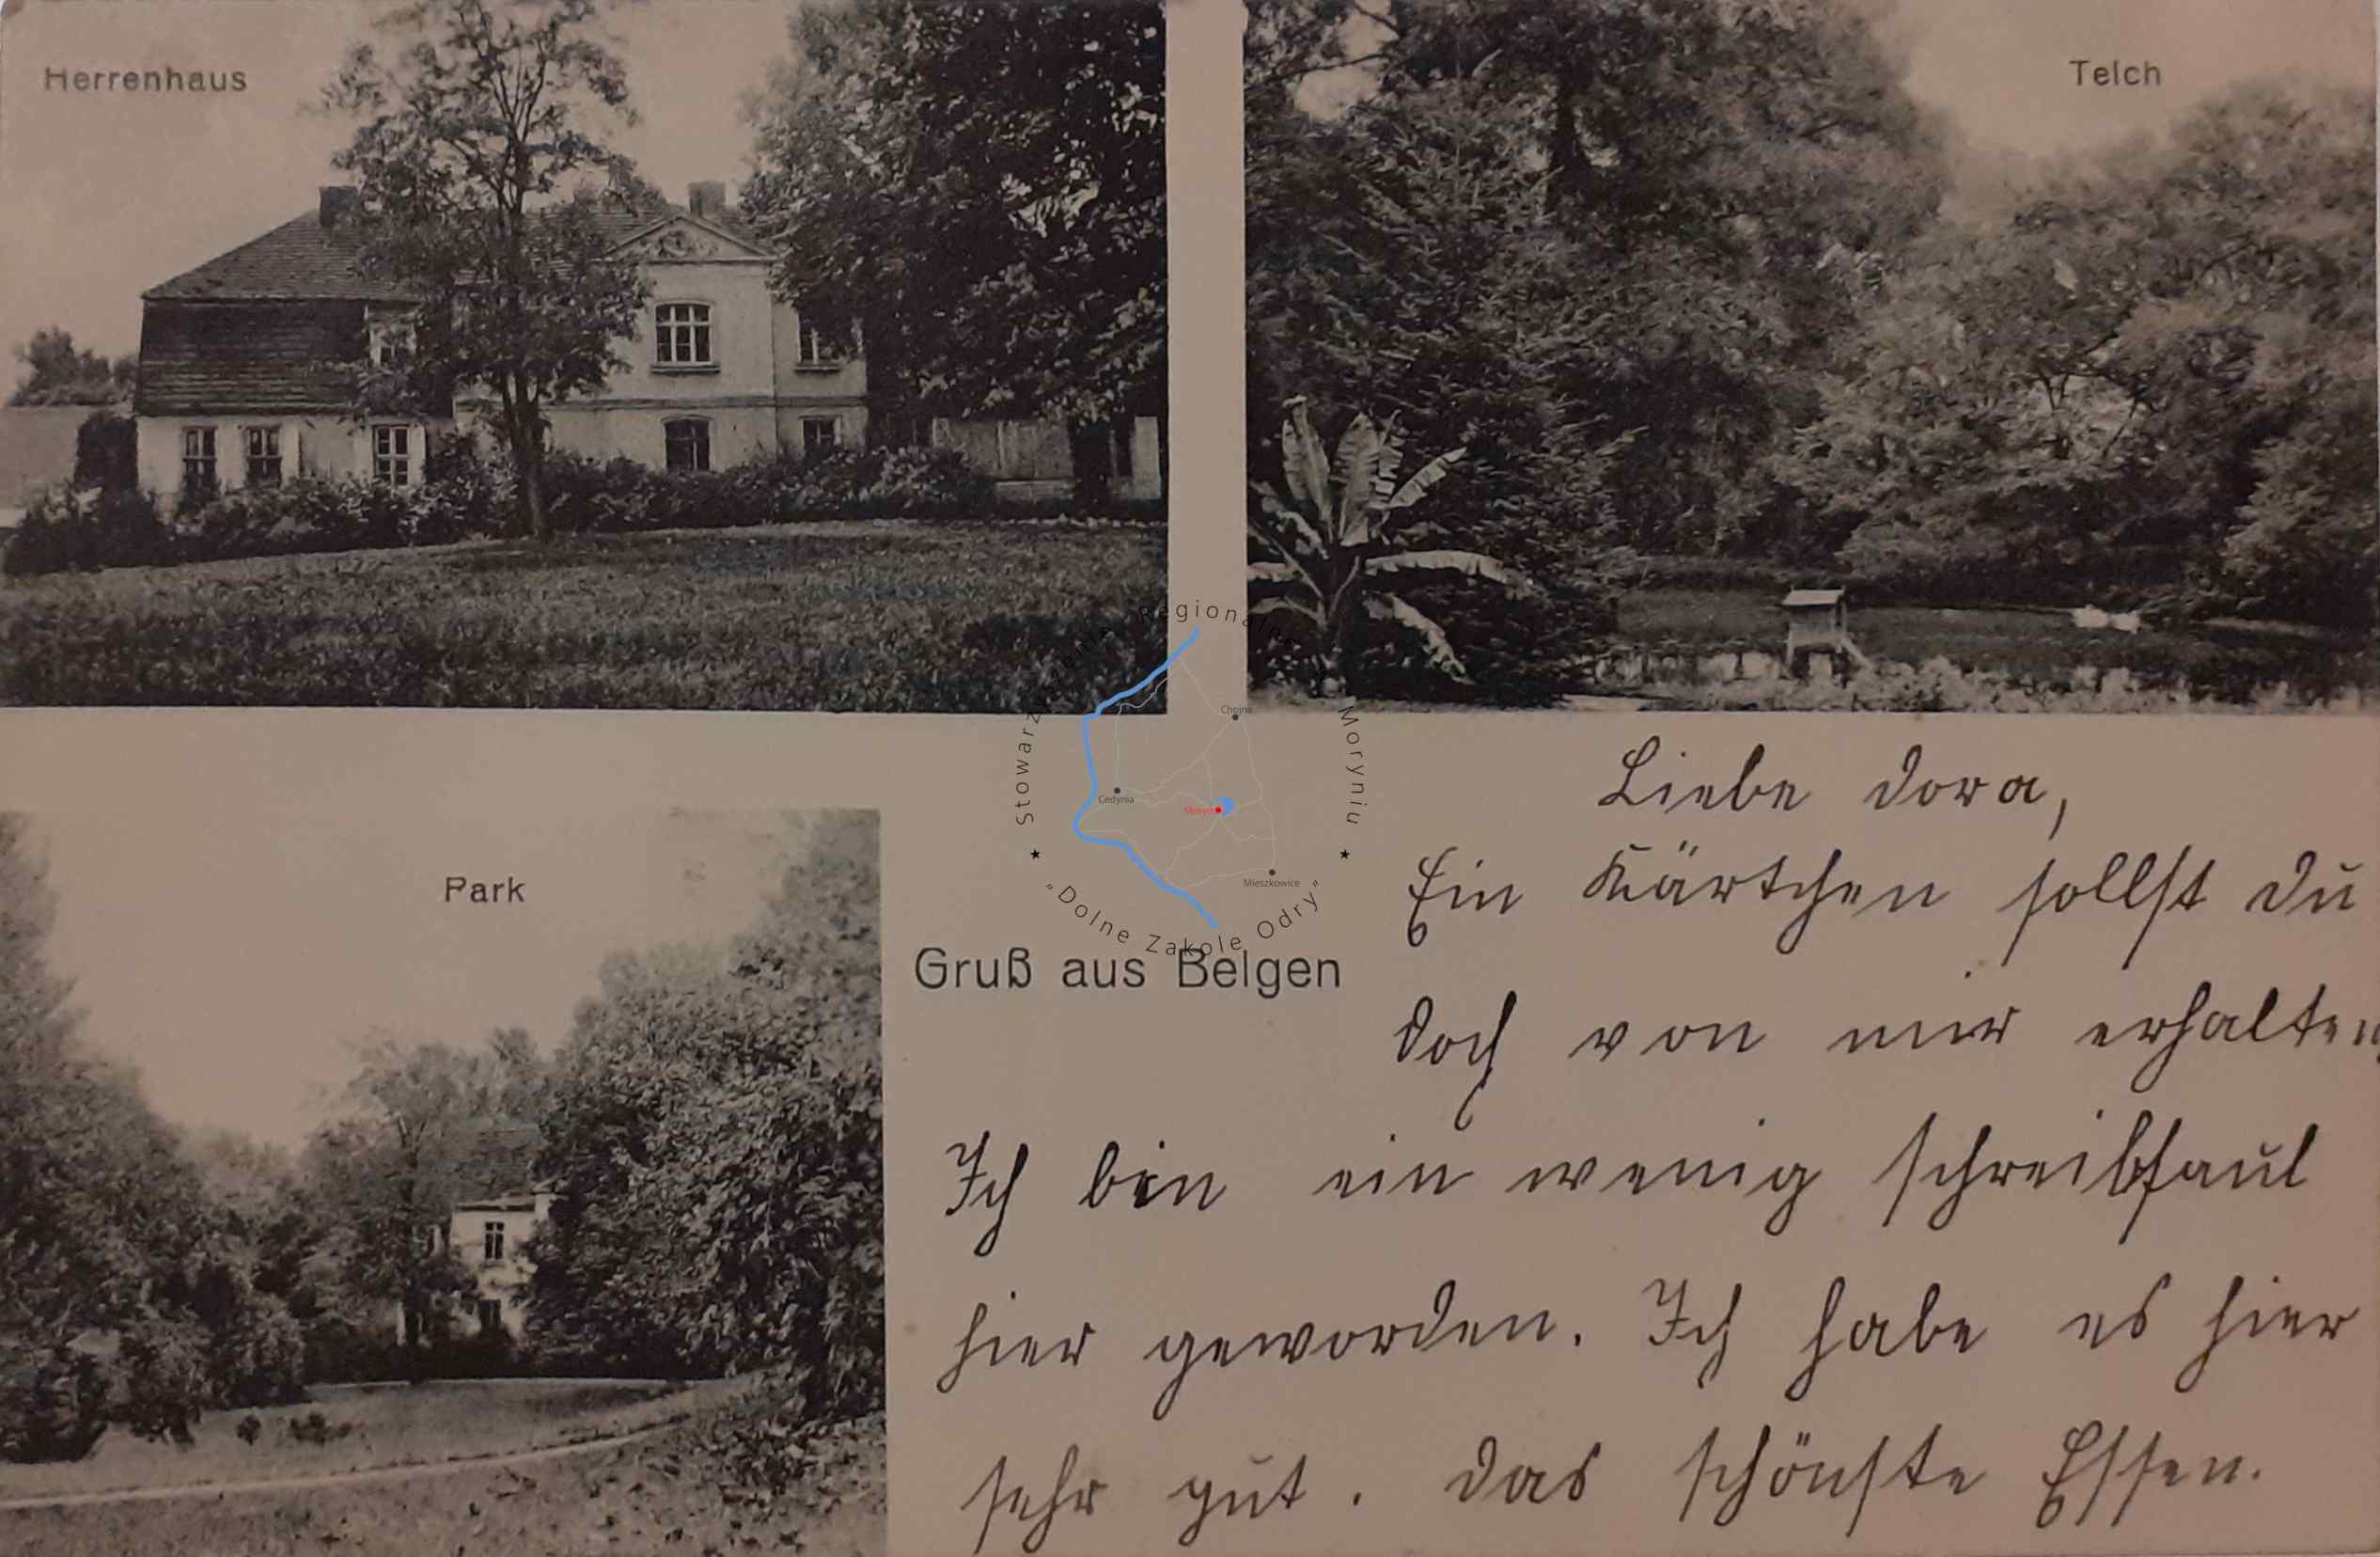 Herrenhaus
Teich
Park
Gruß aus Belgen
Liebe Dora,
Ein Kärtchen sollst Du
doch von mir erhalten
Ich bin ein wenig schreibfaul
hier geworden. Ich habe es hier
sehr gut. Das schönste Essen.
Stowarzyszenie Regionalne w Moryniu
"Dolne Zakole Odry"
Chojna
Cedynia
Moryń
Mieszkowice